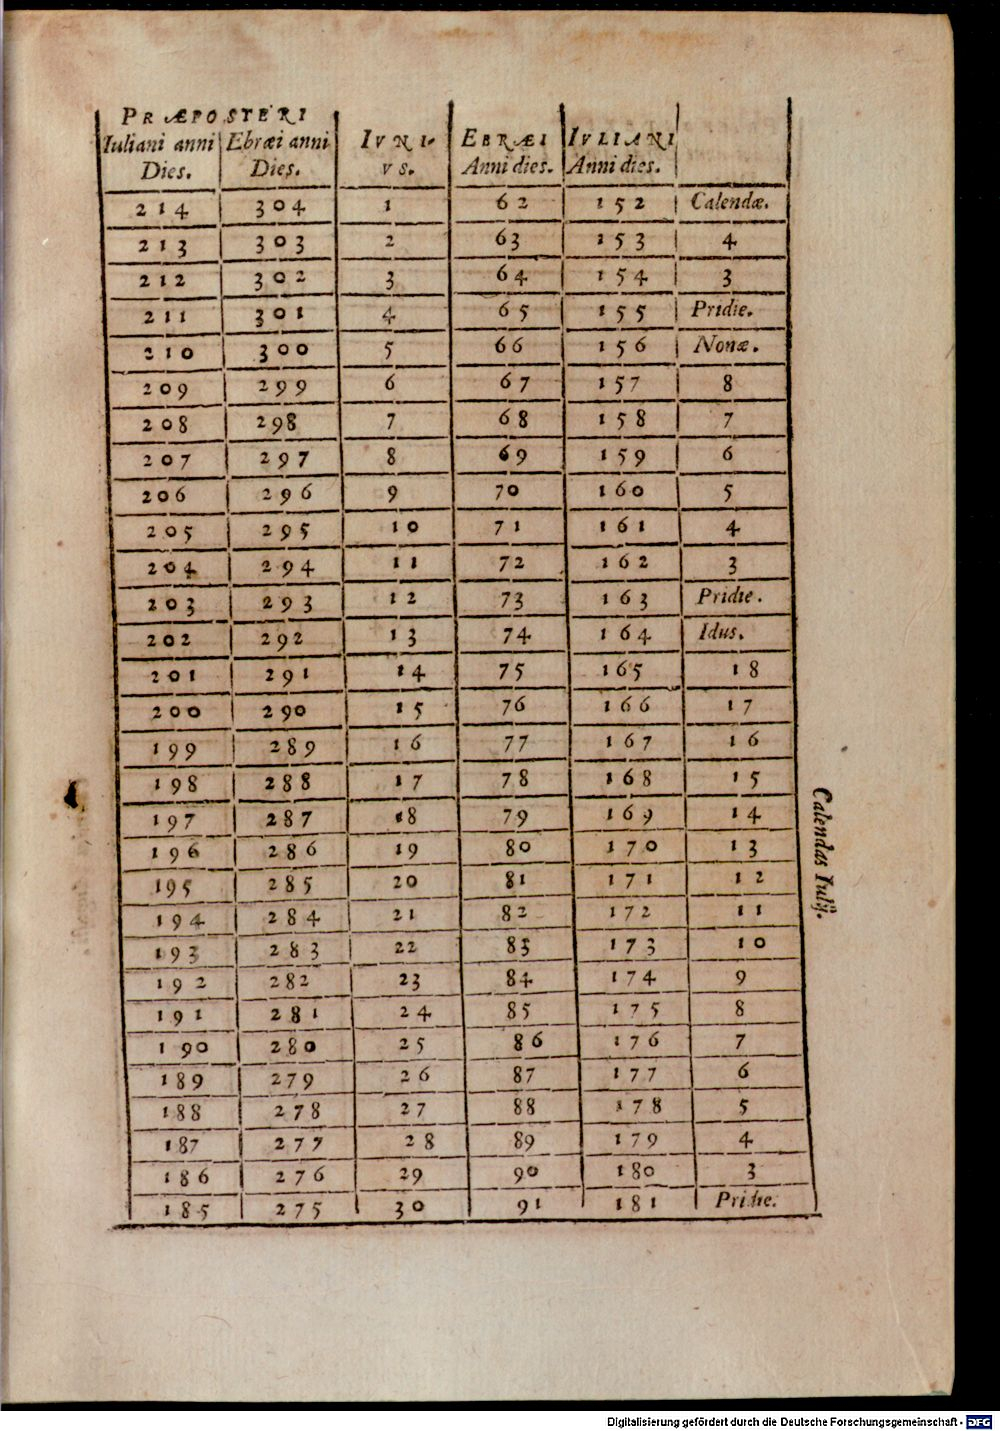 PRÆPOSTERI
Iuliani anni Dies. | Ebræi anni Dies. | IVNIVS. | EBRÆI Anni dies. | IVLIANI Anni dies. |
214 | 304 | 1 | 62 | 152 | Calendæ.
213 | 303 | 2 | 63 | 153 | 4
212 | 302 | 3 | 64 | 154 | 3
211 | 301 | 4 | 65 | 155 | Pridie.
210 | 300 | 5 | 66 | 156 | Nonæ.
209 | 299 | 6 | 67 | 157 | 8
208 | 298 | 7 | 68 | 158 | 7
207 | 297 | 8 | 69 | 159 | 6
206 | 296 | 9 | 70 | 160 | 5
205 | 295 | 10 | 71 | 161 | 4
204 | 294 | 11 | 72 | 162 | 3
203 | 293 | 12 | 73 | 163 | Pridie.
202 | 292 | 13 | 74 | 164 | Idus.
201 | 291 | 14 | 75 | 165 | 18
200 | 290 | 15 | 76 | 166 | 17
199 | 289 | 16 | 77 | 167 | 16
198 | 288 | 17 | 78 | 168 | 15
197 | 287 | 18 | 79 | 169 | 14
196 | 286 | 19 | 80 | 170 | 13
195 | 285 | 20 | 81 | 171 | 12
194 | 284 | 21 | 82 | 172 | 11
193 | 283 | 22 | 83 | 173 | 10
192 | 282 | 23 | 84 | 174 | 9
191 | 281 | 24 | 85 | 175 | 8
190 | 280 | 25 | 86 | 176 | 7
189 | 279 | 26 | 87 | 177 | 6
188 | 278 | 27 | 88 | 178 | 5
187 | 277 | 28 | 89 | 179 | 4
186 | 276 | 29 | 90 | 180 | 3
185 | 275 | 30 | 91 | 181 | Pridie.
Calendas Iulij.
Digitalisierung gefördert durch die Deutsche Forschungsgemeinschaft - DFG